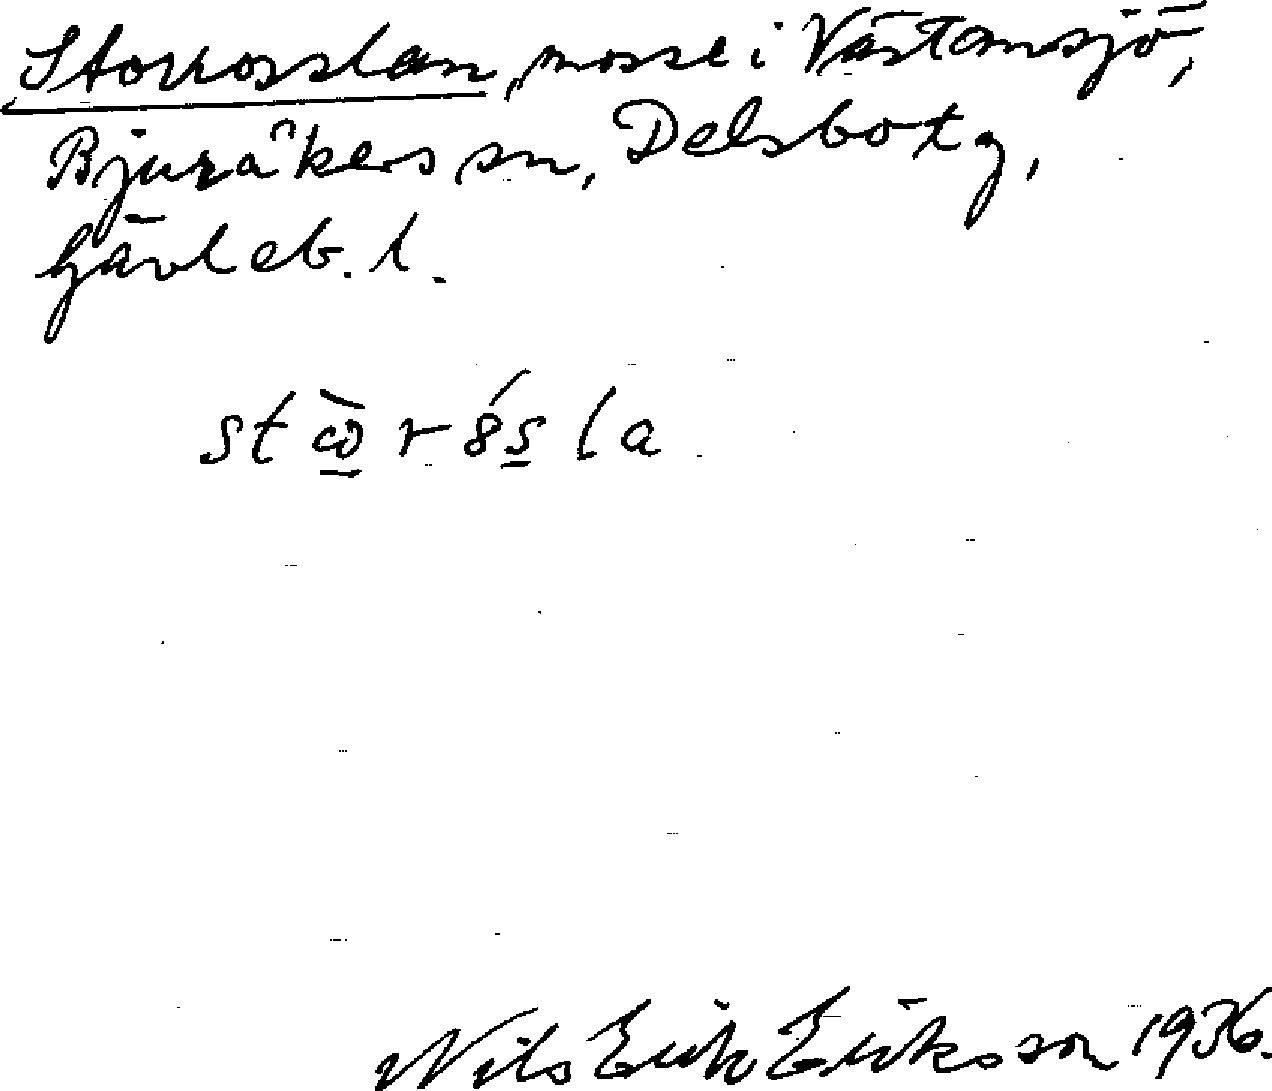 Storrosslan, mosse i Västansjö,
Bjuråkers sn, Delsbo tg,
Gävleb. l.
Nils Erik Eriksson 1936.